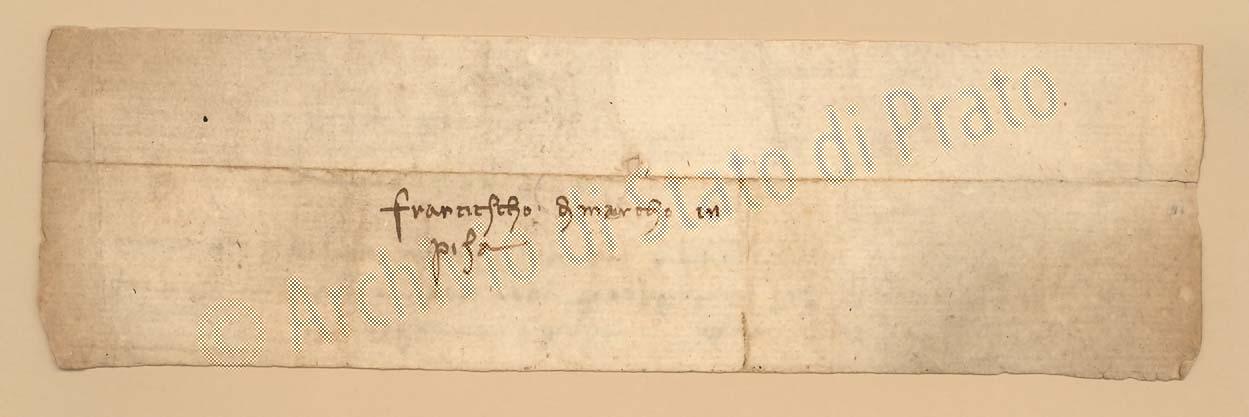 francischo dj marcho in
pisa
© Archivio di Stato di Prato